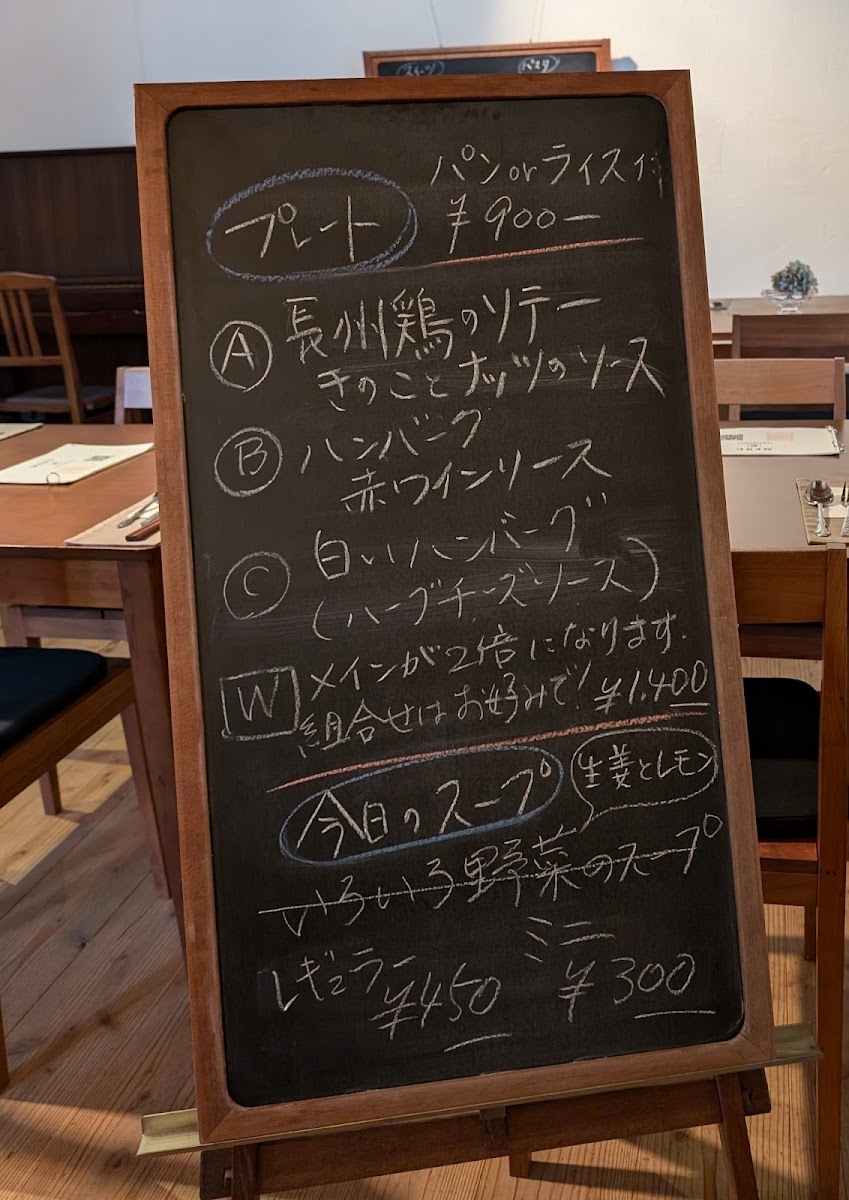 スイーツ パスタ
パンorライス付
プレート ¥900-
A 長州鶏のソテー
きのことナッツのソース
B ハンバーグ
赤ワインソース
C 白いハンバーグ
(ハーブチーズソース)
W メインが2倍になります.
組合せはお好みで! ¥1.400
今日のスープ 生姜とレモン
いろいろ野菜のスープ
レギュラー ミニ
¥450 ¥300